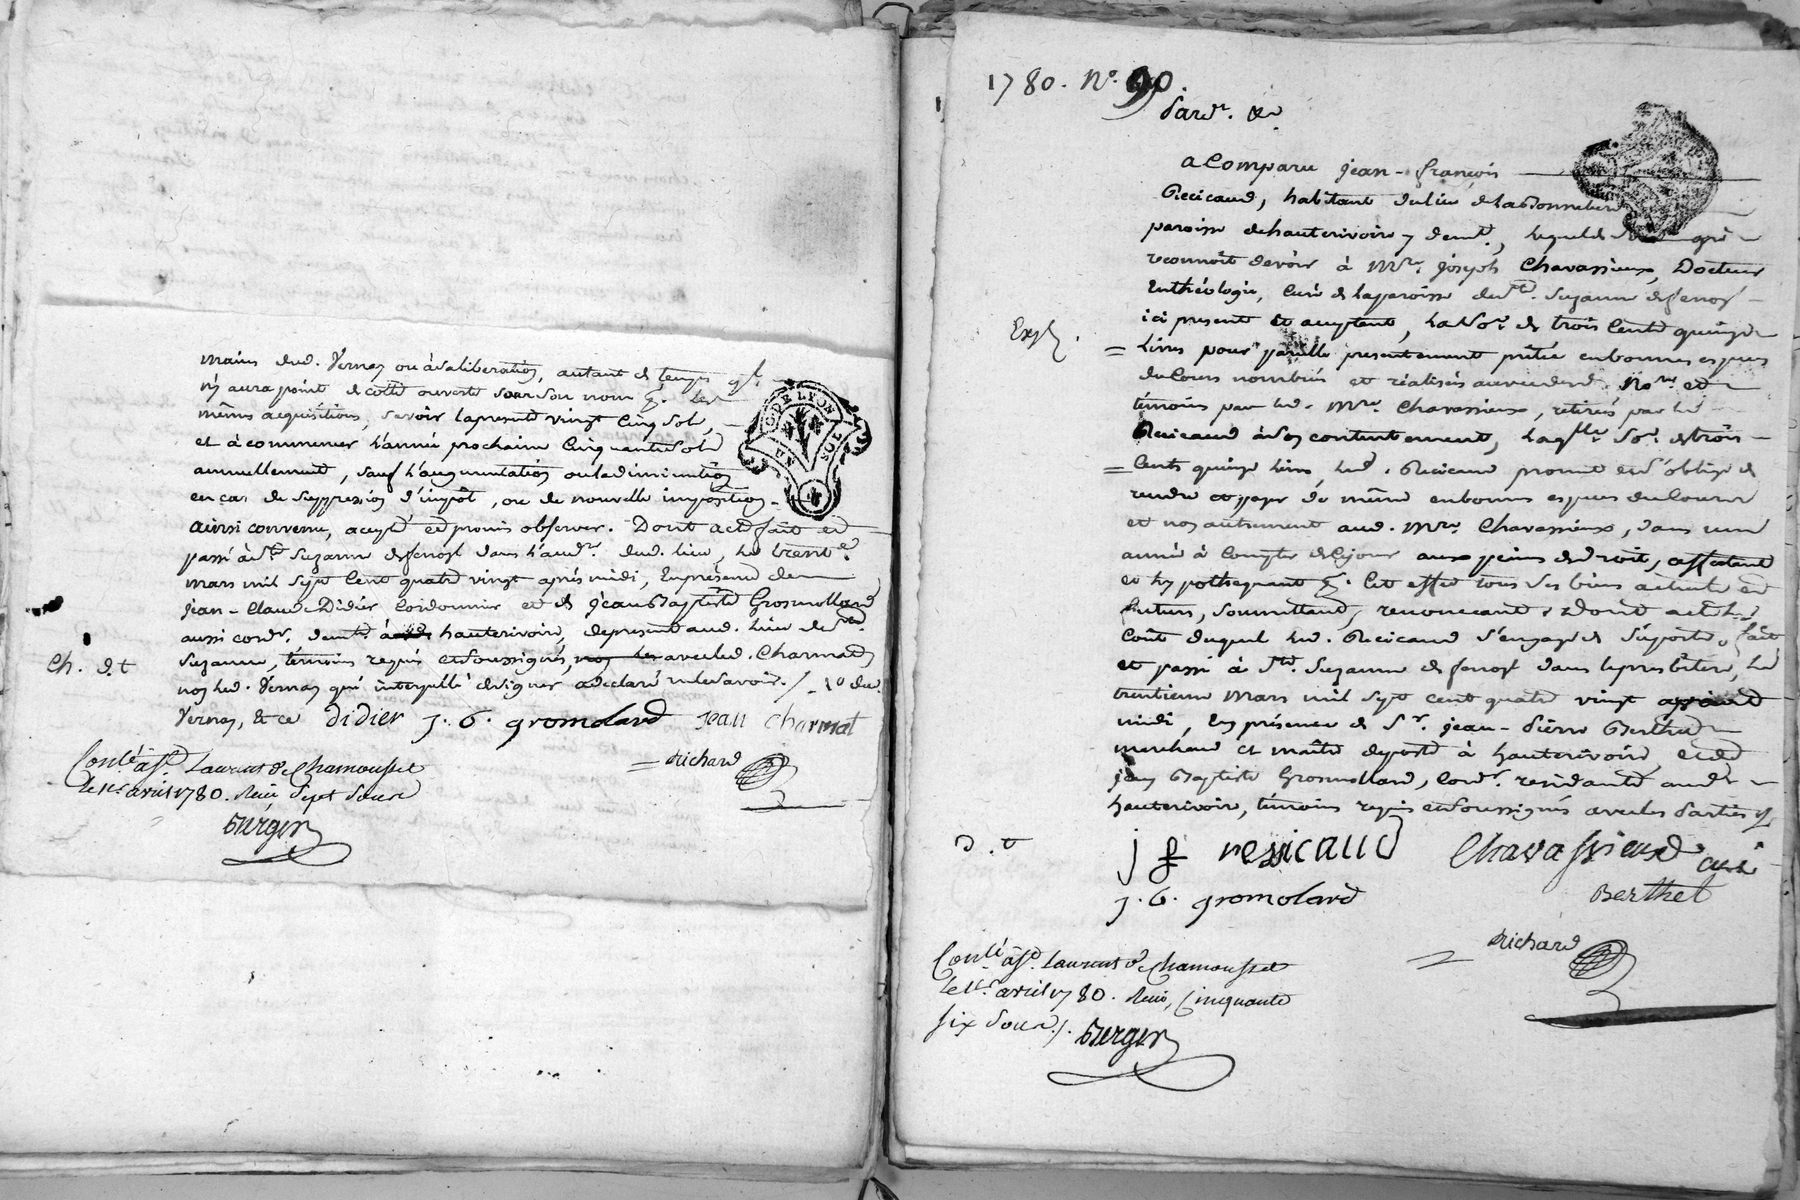 mains dud. Vernay ou à sa liberation, autant de temps ql.
n'y aura point de cotte ouverte sous son nom p. les
mêmes acquisitions, savoir la presente vingt cinq sols,
et à commencer l'année prochaine Cinquante sols
annuellement, sauf l'augmentation ou la diminution
en cas de suppression d'impôt, ou de nouvelle imposition.
ainsi convenu, accepté et promis observer. Dont acte fait et
passé à Ste. Suzanne desfenosl dans l'aud. dud. lieu, le trente
mars mil sept cent quatre vingt après midi, En présence de
jean-Claude Didier Cordonnier et de jean Baptiste Gromollard
aussi cordr. demt. à hauterivoire, de présent aud. lieu de Ste.
Suzanne, témoins requis et soussignés, avec led. Charmat
non led. Vernay qui interpellé de signer a declaré ne le savoir. /.
Vernay, & ce Didier j. b. gromolard jean charmat
Ch. d. t
Conlé. à St. Laurent de Chamousset
le 1er. avril 1780. Reçu sept sous
Berger
Richard
G. DE LYON
UN SOL
1780. N°. 90.
Pardt. &a
a Comparu jean-françois
Recicaud, habitant du lieu de
paroisse de hauterivoire y demt., lequel
reconnoît devoir à Mre. joseph Chavassieux, Docteur
En théologie, Curé de la paroisse de Ste. Suzanne desfenosl
ici present et acceptant, la so. de trois Cents quinze
Exp.
livres pour pareille presentement prêtée en bonnes especes
du Cours nombrées et réalisées au vu desd. Nores. et
témoins par led. Mre. Chavassieux, retirées par led.
Recicaud à son contentement, laqlle. so. de trois
Cents quinze livres, led. Recicaud promet et s'oblige de
rendre et payer de même en bonnes especes du Cours
et non autrement aud. Mre. Chavassieux, dans une
année à Compter de ce jour aux peines de droit, affectant
et hypothequant p. Cet effet tous ses biens actuels et
futurs, soumettant, renonçant, dont acte le
Coût duquel led. Recicaud s'engage de supporter, fait
et passé à Ste. Suzanne desfenosl dans le presbitere, le
trentieme Mars mil sept cent quatre vingt avant
midi, En présence de Sr. jean-Pierre Berthet
marchand et maître de poste à hauterivoire, et de
jean Baptiste Gromollard, Cordr. residants aud.
hauterivoire, témoins requis et soussignés avec les parties
D. t
j f ressicaud Chavassieux curé
j. b. gromolard Berthet
Conlé. à St. Laurent de Chamousset
le 1er. avril 1780. Reçu Cinquante
six sous /. Berger
Richard